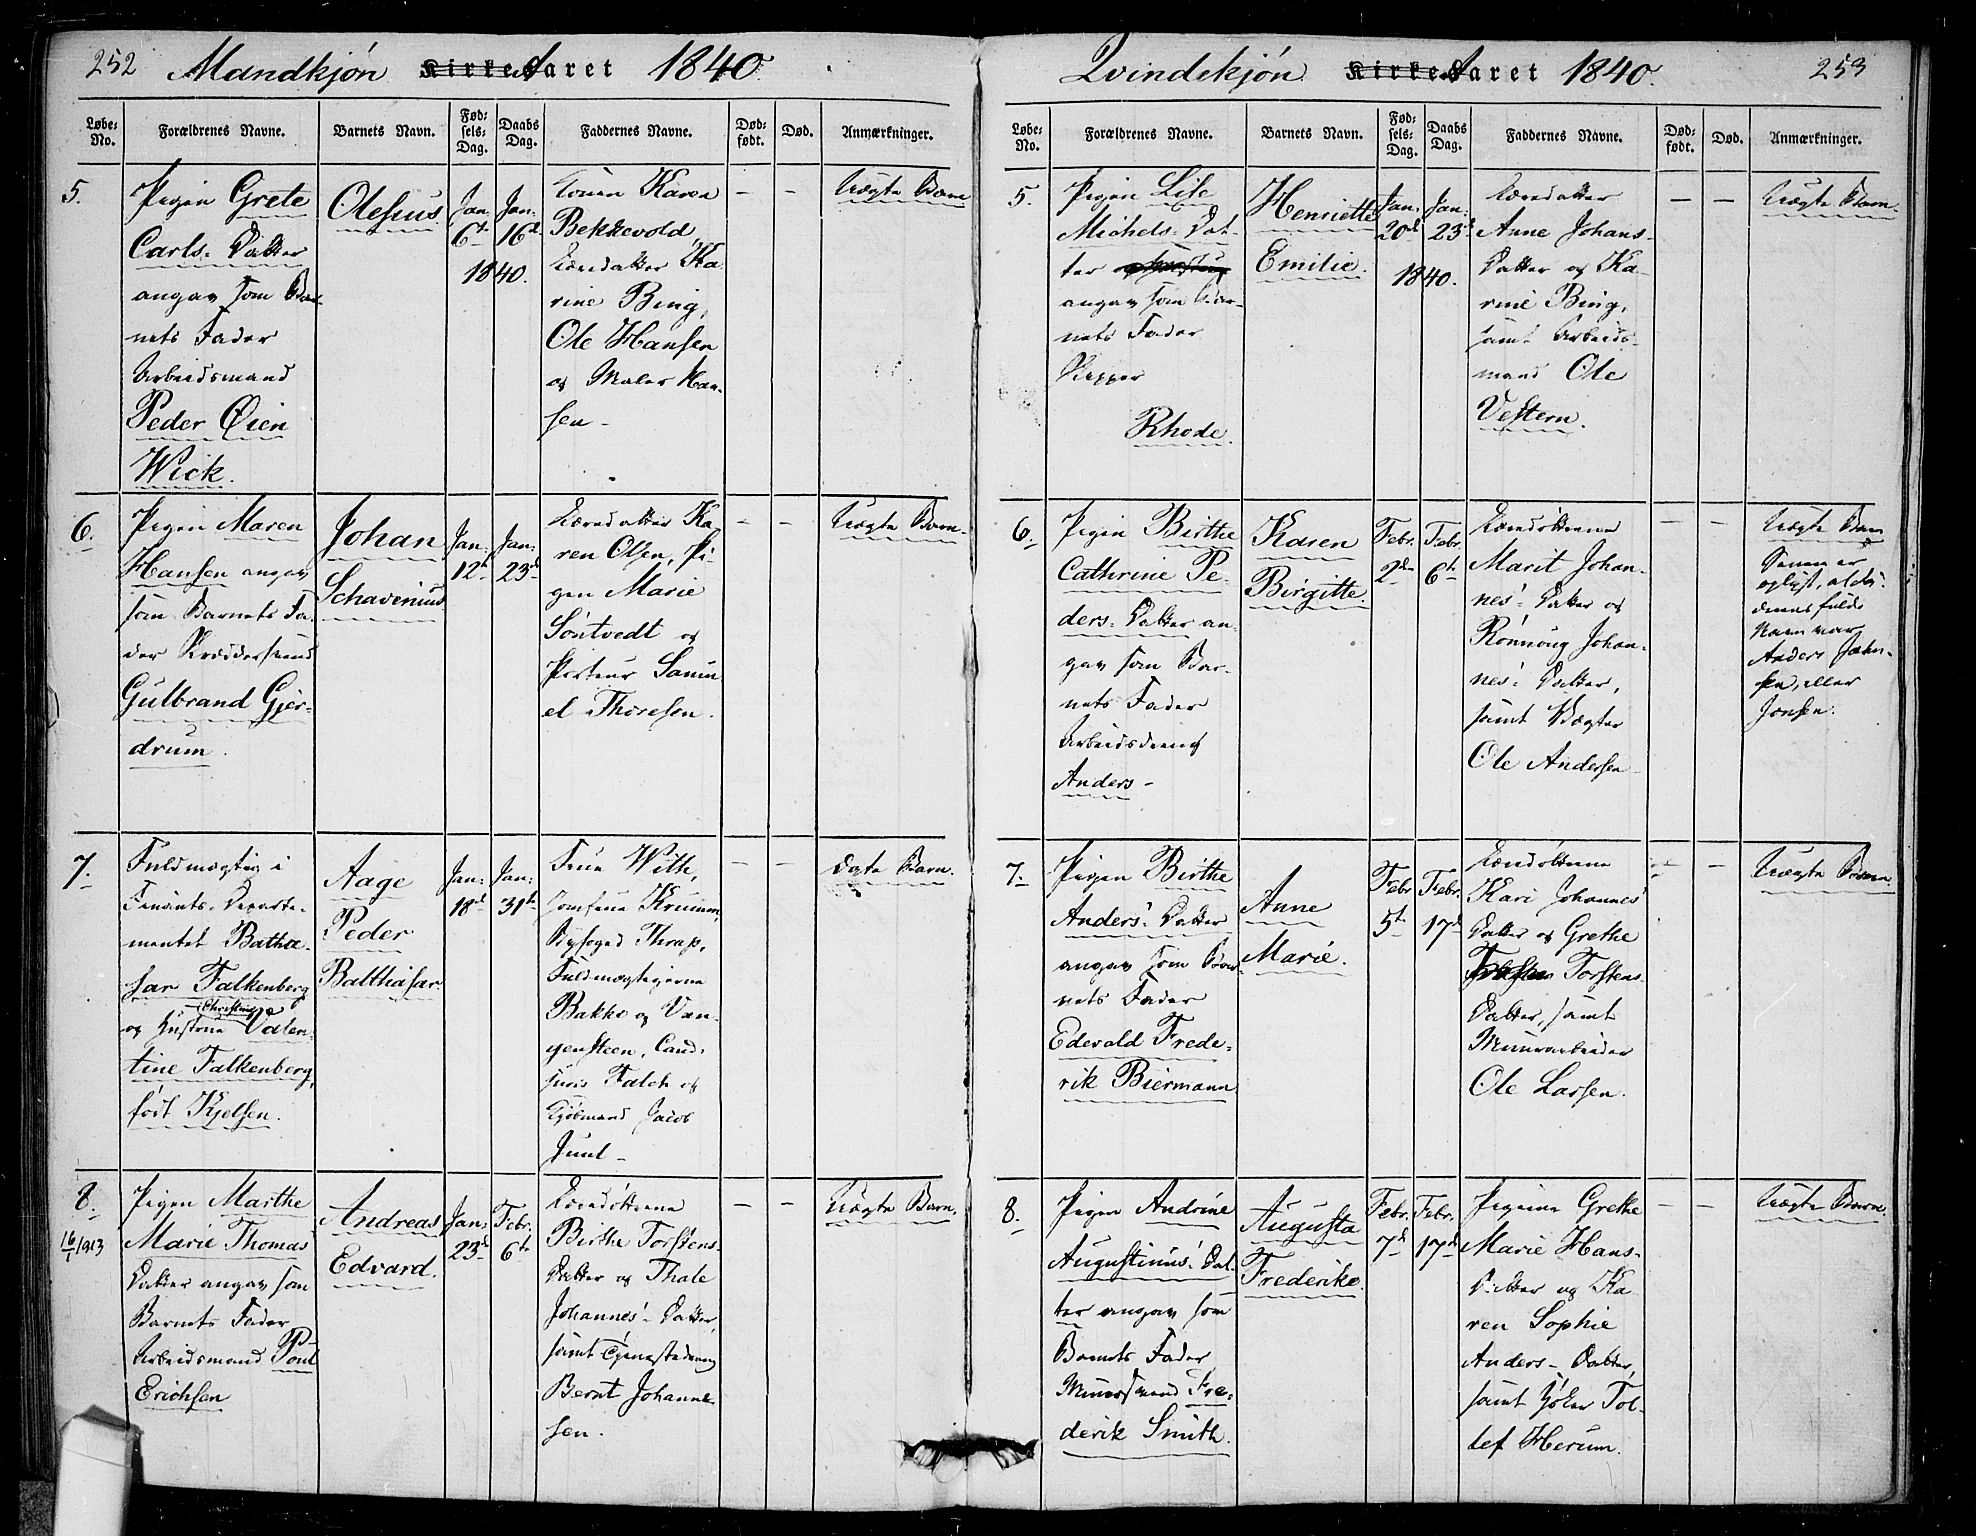 252 Mandkjön Kirke Aaret 1840.
Løbe-No. Forældrenes Navne. Barnets Navn. Fødsels-Dag. Daabs Dag. Faddernes Navne. Dødfødt. Død. Anmærkninger.
5.
Pigen Grete
Carls-Datter
angav som Bar-
nets Fader
Arbeidsmand
Peder Øien
Wick.
Olesius
Jan. 6te
Jan. 16de
1840.
Konen Karen
Bekkevold,
Læredatter Ka-
rine Bing,
Ole Hansen
og Maler Han-
sen -
- -
Uægte Barn
6.
Pigen Maren
Hansen angav
som Barnets Fa-
der Skræddersvend
Gulbrand Gjer-
drum.
Johan
Schavenius
Jan: 12te
Jan: 23de
Læredatter Ka-
ren Olsen, Pi-
gen Marie
Söntvedt og
Porteur Samu-
el Thoresen.
- -
Uægte Barn.
7.
Fuldmægtig i
Finants-Departe-
mentet Baltha-
sar Falkenberg
Christine
og Hustrue Valen-
tine Falkenberg,
föd Kjelsen.
Aage
Peder
Balthasar
Jan: 18de
Jan: 31te
Frue With,
Jomfrue Krumm,
Byfoged Thrap,
Fuldmægtigerne
Bakke og Van-
gensteen, Cand:
juris Falch og
Kjöbmand Jacob
Juul -
- -
Ægte Barn.
8.
16/1 1913
Pigen Marthe
Marie Thomas'
Datter angav som
Barnets Fader
Arbeidsmand Poul
Erichsen
Andreas
Edvard.
Jan: 23de
Febr. 6te
Læredöttrene
Birthe Torstens-
Datter og Thale
Johannes'-Datter,
samt Tjenestedreng
Bernt Johanne-
sen.
- -
Uægte Barn.
Qvindekjön Kirke Aaret 1840. 253
Løbe-No. Forældrenes Navne. Barnets Navn. Fødsels-Dag. Daabs Dag. Faddernes Navne. Dødfødt. Død. Anmærkninger.
5.
Pigen Lise
Michels-Dat-
ter
angav som Bar-
nets Fader
Rhode.
Henriette
Emilie.
Jan: 20de
Jan: 23de
1840.
Læredatter
Anne Johans-
Datter og Ka-
rine Bing,
samt Arbeids-
mand Ole
Vestern.
- -
Uægte Barn.
6.
Pigen Birthe
Cathrine Pe-
ders-Datter an-
gav som Bar-
nets Fader
Arbeidsdreng
Anders -
Karen
Birgitte.
Febr. 2den
Febr. 6te
Læredöttrene
Marit Johan-
nes'-Datter og
Rönnoug Johan-
nes'-Datter,
samt Vægter
Ole Andersen
- -
Uægte Barn
Senere er
oplyst, at Fa-
derens fulde
Navn var
Anders Jahn-
sen, eller
Jonsen.
7.
Pigen Birthe
Anders'-Datter
angav som Bar-
nets Fader
Edevald Frede-
rik Biermann
Anne
Marie.
Febr. 5te
Febr. 17de
Læredöttrene
Kari Johannes'
Datter og Grethe
Torstens
Datter, samt
Muurarbeider
Ole Larsen.
- -
Uægte Barn.
8.
Pigen Andrine
Augustinus'-Dat-
ter angav som
Barnets Fader
Muursvend Fre-
derik Smith.
Augusta
Frederike
Febr. 7de
Febr. 17de
Pigerne Grethe
Marie Hans-
Datter og Ka-
ren Sophie
Anders-Datter,
samt Höker Tol-
lef Herum.
- -
Uægte Barn.